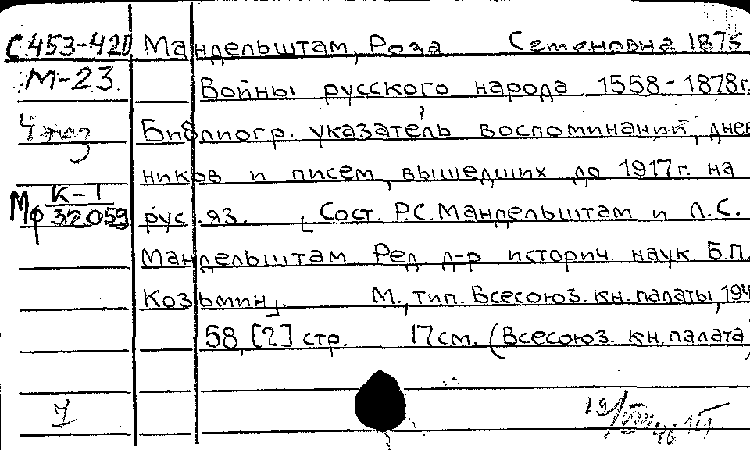 С.453-420 Мандельштам, Роза Семеновна 1875
М-23. Войны русского народа 1558-1878г.
4 экз Библиогр. указатель воспоминаний, днев
ников и писем, вышедших до 1917г. на
Мф К-1 32059 рус. яз. [Сост. Р.С. Мандельштам и Л.С.
Мандельштам Ред. д-р историч наук Б.П.
Козьмин]. М., тип. Всесоюз. кн. палаты, 194
58, [2] стр. 17см. (Всесоюз. кн. палата